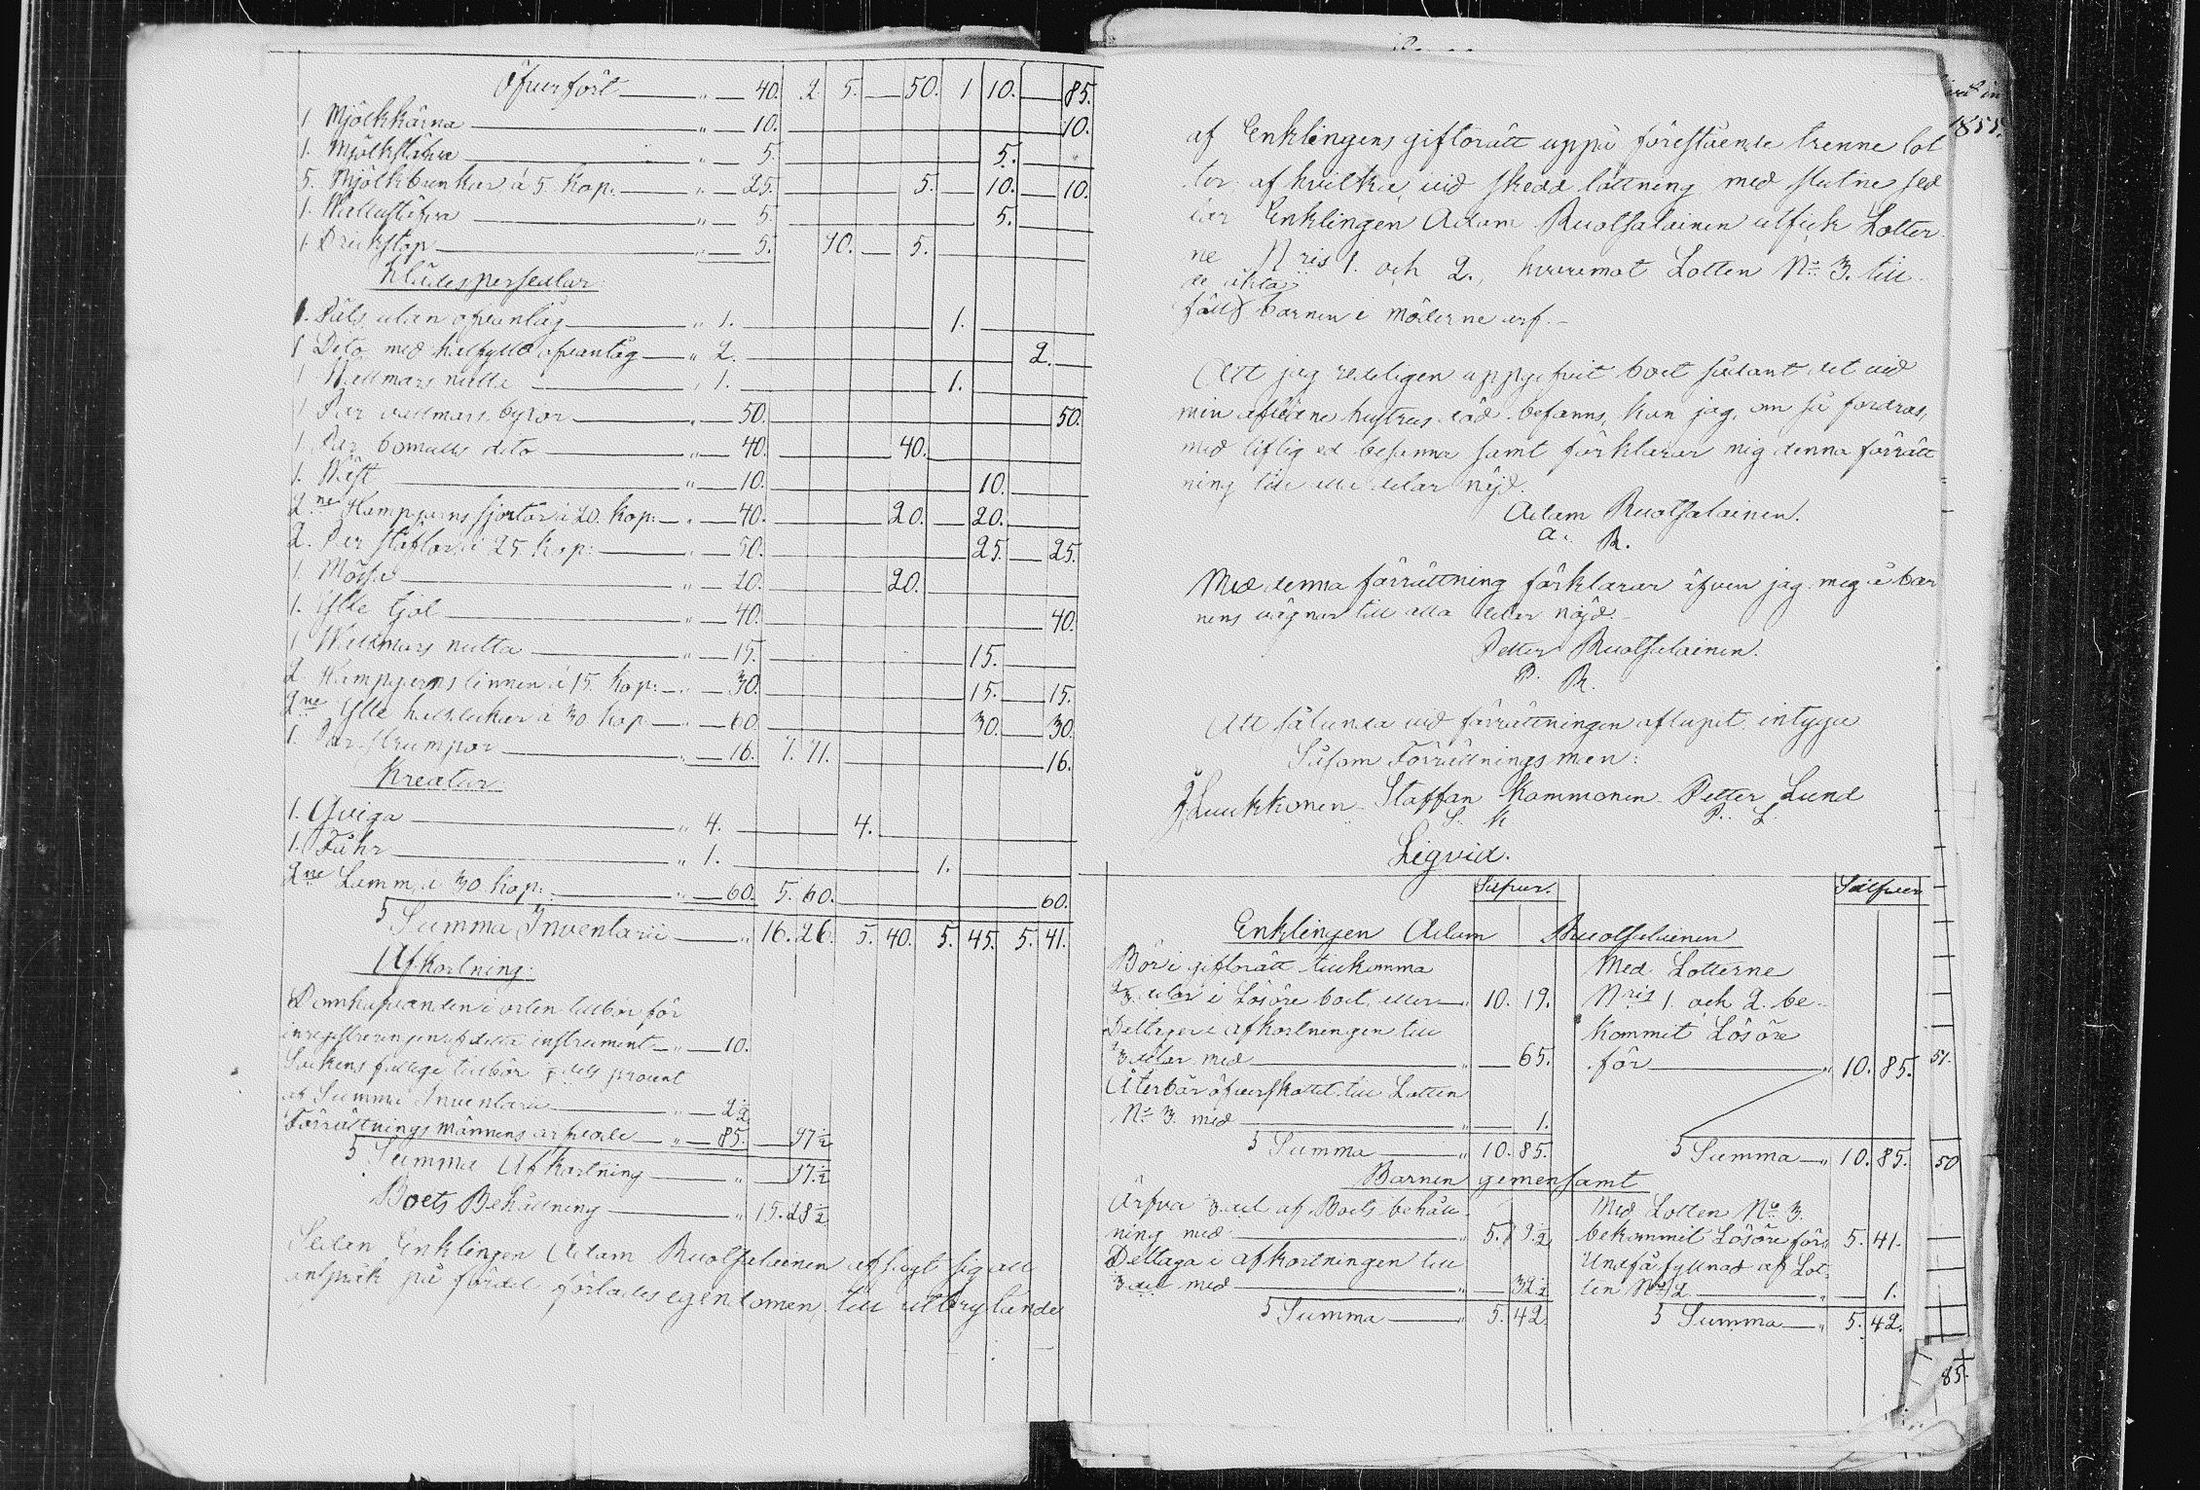 Öfverfört — " — 40. 2. 5. — 50. 1 10. — 85.
1 Mjölkkärna — " — 10. 10.
1. Mjölkstäfva — " — 5. 5.
5. Mjölkbunkar á 5 Kop. — " — 25. 5. 10. 10.
1. Wattustäfva — " — 5. 5.
1. Drickstop — " — 5. 40. — 5.
Klädespersedlar:
1. Päls utan ofvantÿg — " 1. 1.
1 Dito med halfylle ofvantÿg — " 2. 2.
1 Wallmars mutta — " 1. 1.
1 Par vallmars byxor — " — 50. 50.
1 Par bomulls dito — " — 40. 40.
1. Wäst — " — 10. 10.
2ne Hampgarns sjortor á 20. Kop. — " — 40. 20. — 20.
2. Par stöflor á 25 Kop: — " — 50. 25. — 25.
1. Mössa — " — 20. 20.
1. Ylle tjol — " — 40. 40.
1 Wallmars mutta — " — 15. 15.
2 Hampgarns linnen á 15 Kop: — " — 30. 15. — 15.
2ne Ylle halsdukar á 30 Kop — " — 60 30. — 30.
1. Par strumpor — " — 16. 7. 71. 16.
Kreatur:
1. Qviga — " 4. 4.
1. Fåhr — " 1. 1.
2ne Lamm á 30 Kop: — " — 60. 5. 60. 60.
Summa Inventarii — " 16. 26. 5. 40. 5. 45. 5. 41.
Afkortning:
Domhafvanden i orten tillbör för
inregistreringen af detta instrument — " — 10.
Sockens fattige tillbör dels procent
af Summa Inventarii — " — 2½
Förrättningsmännens arfvode — " — 85. — 97½
Summa Afkortning — " — 97½
Boets Behållning — " 15. 28½
Sedan Enklingen Adam Ruotsalainen afsagt sig all
anspråk på fördel, förlades egendomen, till utbrytande
af Enklingens giftorätt uppå förestående trenne lot
ter, af hvilka vid skedd lottning med slutne sed
lar Enklingen Adam Ruotsalainen utfick Lotter
ne Nris 1. och 2., hvaremot Lotten No 3. till
de äkta
föll barnen i möderne arf. –
Att jag redeligen uppgifvit boet sådant det vid
min aflidne hustrus död befanns, kan jag, om så fordras,
med liflig ed besanna samt förklarar mig denna förrätt
ning till alla delar nöjd.
Adam Ruotsalainen.
A. R.
Med denna förrättning förklarar äfven jag mig å bar
nens vägnar till alla delar nöjd. –
Petter Ruotsalainen.
P. R.
Att sålunda vid förrättningen aflupit intyga
Såsom Förrättningsmän:
J. Luukkonen Staffan Kammonen Petter Lund
S. K P. L.
Liqvid.
Silfver. Silfver
Enklingen Adam Ruotsalainen
Bör i giftorätt tillkomma
⅔ delar i Lösöre boet, eller — " 10. 19.
Deltager i afkortningen till
⅔ delar med — " — 65.
Återbär öfverskottet till Lotten
No 3 med — " — 1.
Summa — " 10. 85.
Med Lotterne
Nris 1 och 2. be-
kommit Lösöre
för — " 10. 85.
Summa — " 10. 85.
Barnen gemensamt
Ärfva ⅓ del af Boets behåll
ning med — " 5. 9½
Deltaga i afkortningen till
⅓ del med — " — 32½
Summa — " 5. 42.
Med Lotten No 3.
bekommit Lösöre för " 5. 41.
Undfå fyllnad af Lot-
ten No 2 — " — 1.
Summa — " 5. 42.
1855.
51.
50
85.